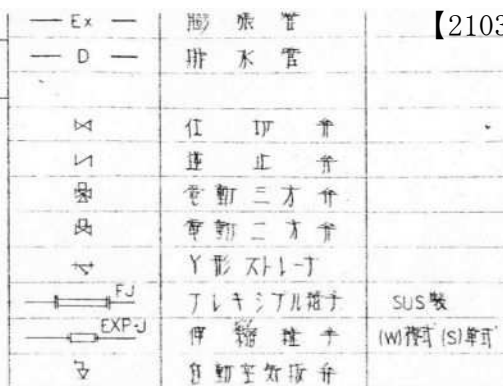 【2103
Ex 膨張管
D 排水管
仕切弁
逆止弁
電動三方弁
電動二方弁
Y形ストレーナ
FJ フレキシブル継手 SUS製
EXP-J 伸縮継手 (W)複式 (S)単式
自動空気抜弁